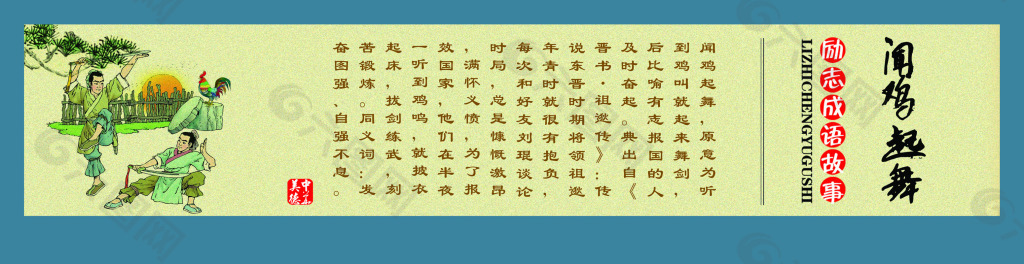 闻鸡起舞
励志成语故事
LIZHICHENGYUGUSHI
闻鸡起舞,原意为听
到鸡叫就起来舞剑,
后比喻有志报国的人
及时奋起。典出自《
晋书·祖逖传》:传
说东晋时期将领祖逖
年青时就很有抱负,
每次和好友刘琨谈论
时局,总是慷慨激昂
,满怀义愤,为了报
效国家,他们在半夜
一听到鸡鸣,就披衣
起床,拔剑练武,刻
苦锻炼。同义词:发
奋图强、自强不息。
中华
美德